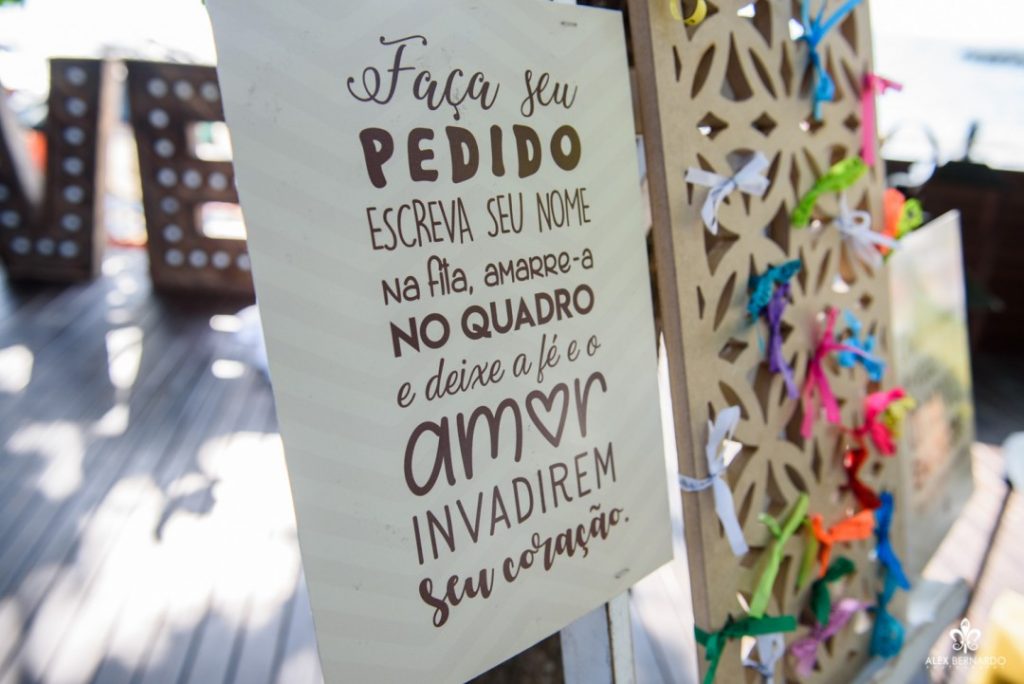 Faça seu
PEDIDO
ESCREVA SEU NOME
na fita, amarre-a
NO QUADRO
e deixe a fé e o
amor
INVADIREM
seu coração.
ALEX BERNARDO